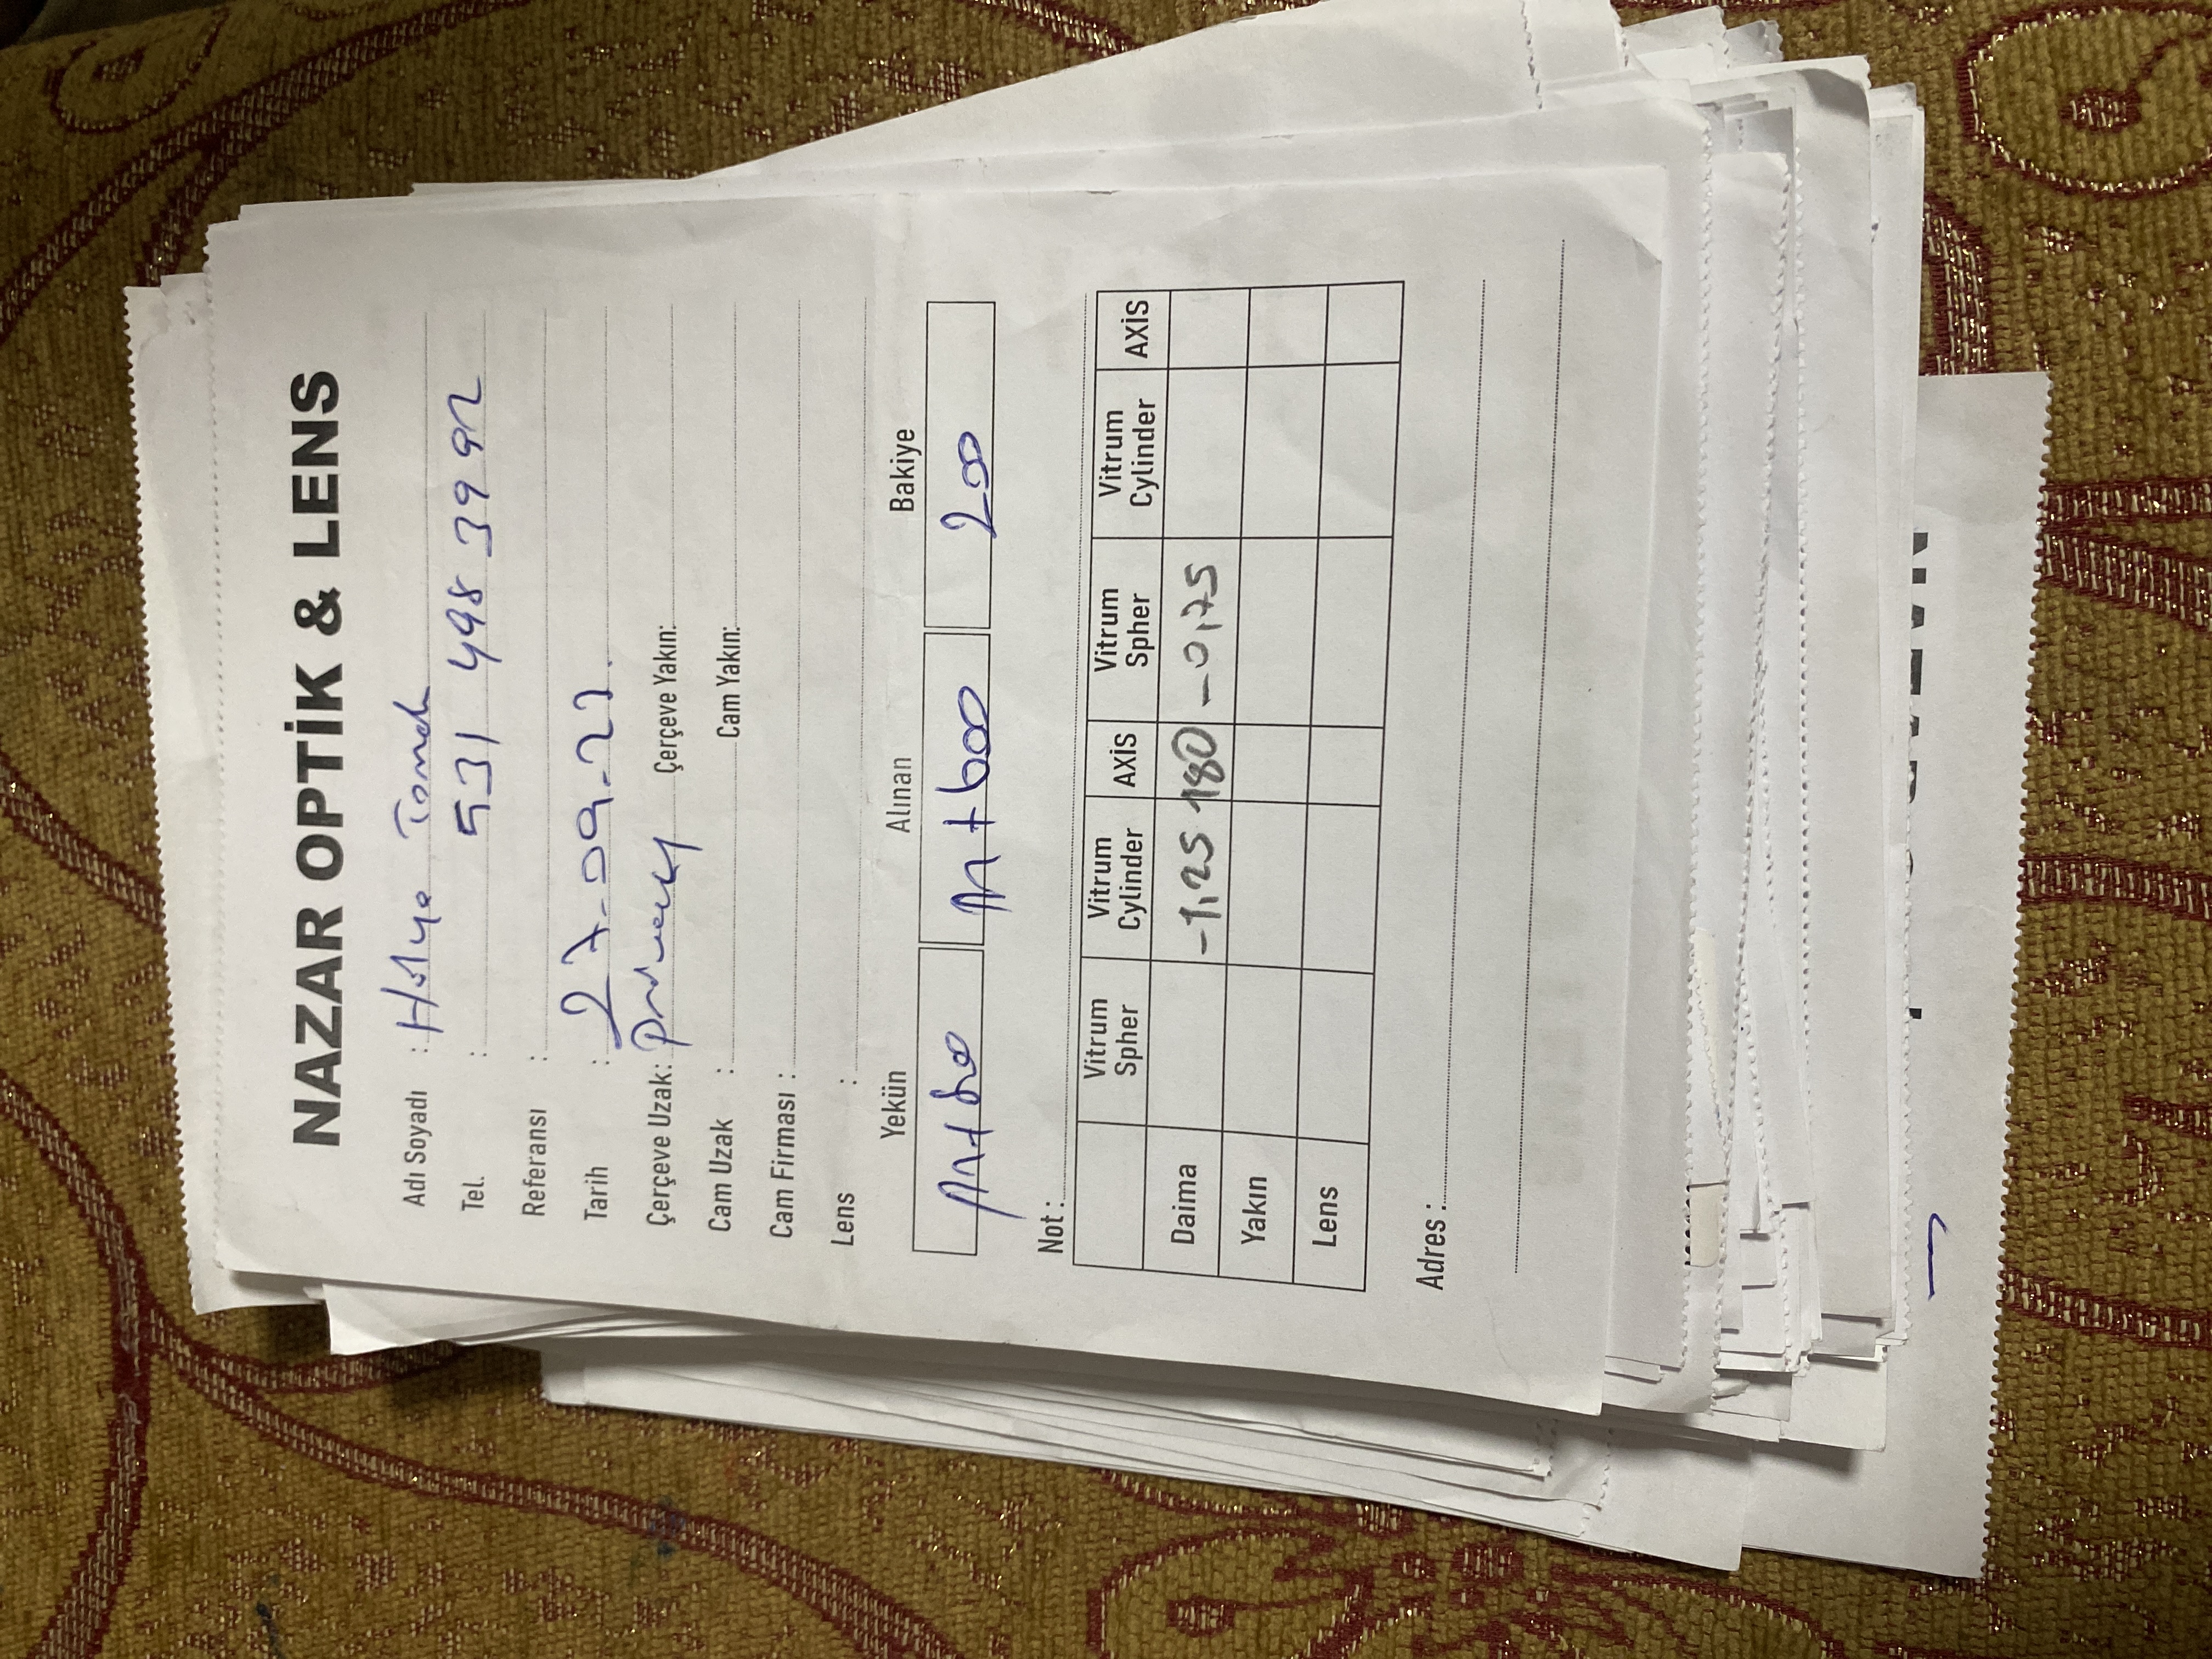 NAZAR OPTİK & LENS
Adı Soyadı : Hülya
Tel. : 531 498 3992
Referansı :
Tarih : 27-09-22.
Çerçeve Uzak: Çerçeve Yakın:
Cam Uzak : Cam Yakın:
Cam Firması :
Lens :
Yekün Alınan Bakiye
M+800 M+600 200
Not :
Vitrum Spher Vitrum Cylinder AXİS Vitrum Spher Vitrum Cylinder AXİS
Daima -1,25 180 -0,75
Yakın
Lens
Adres :